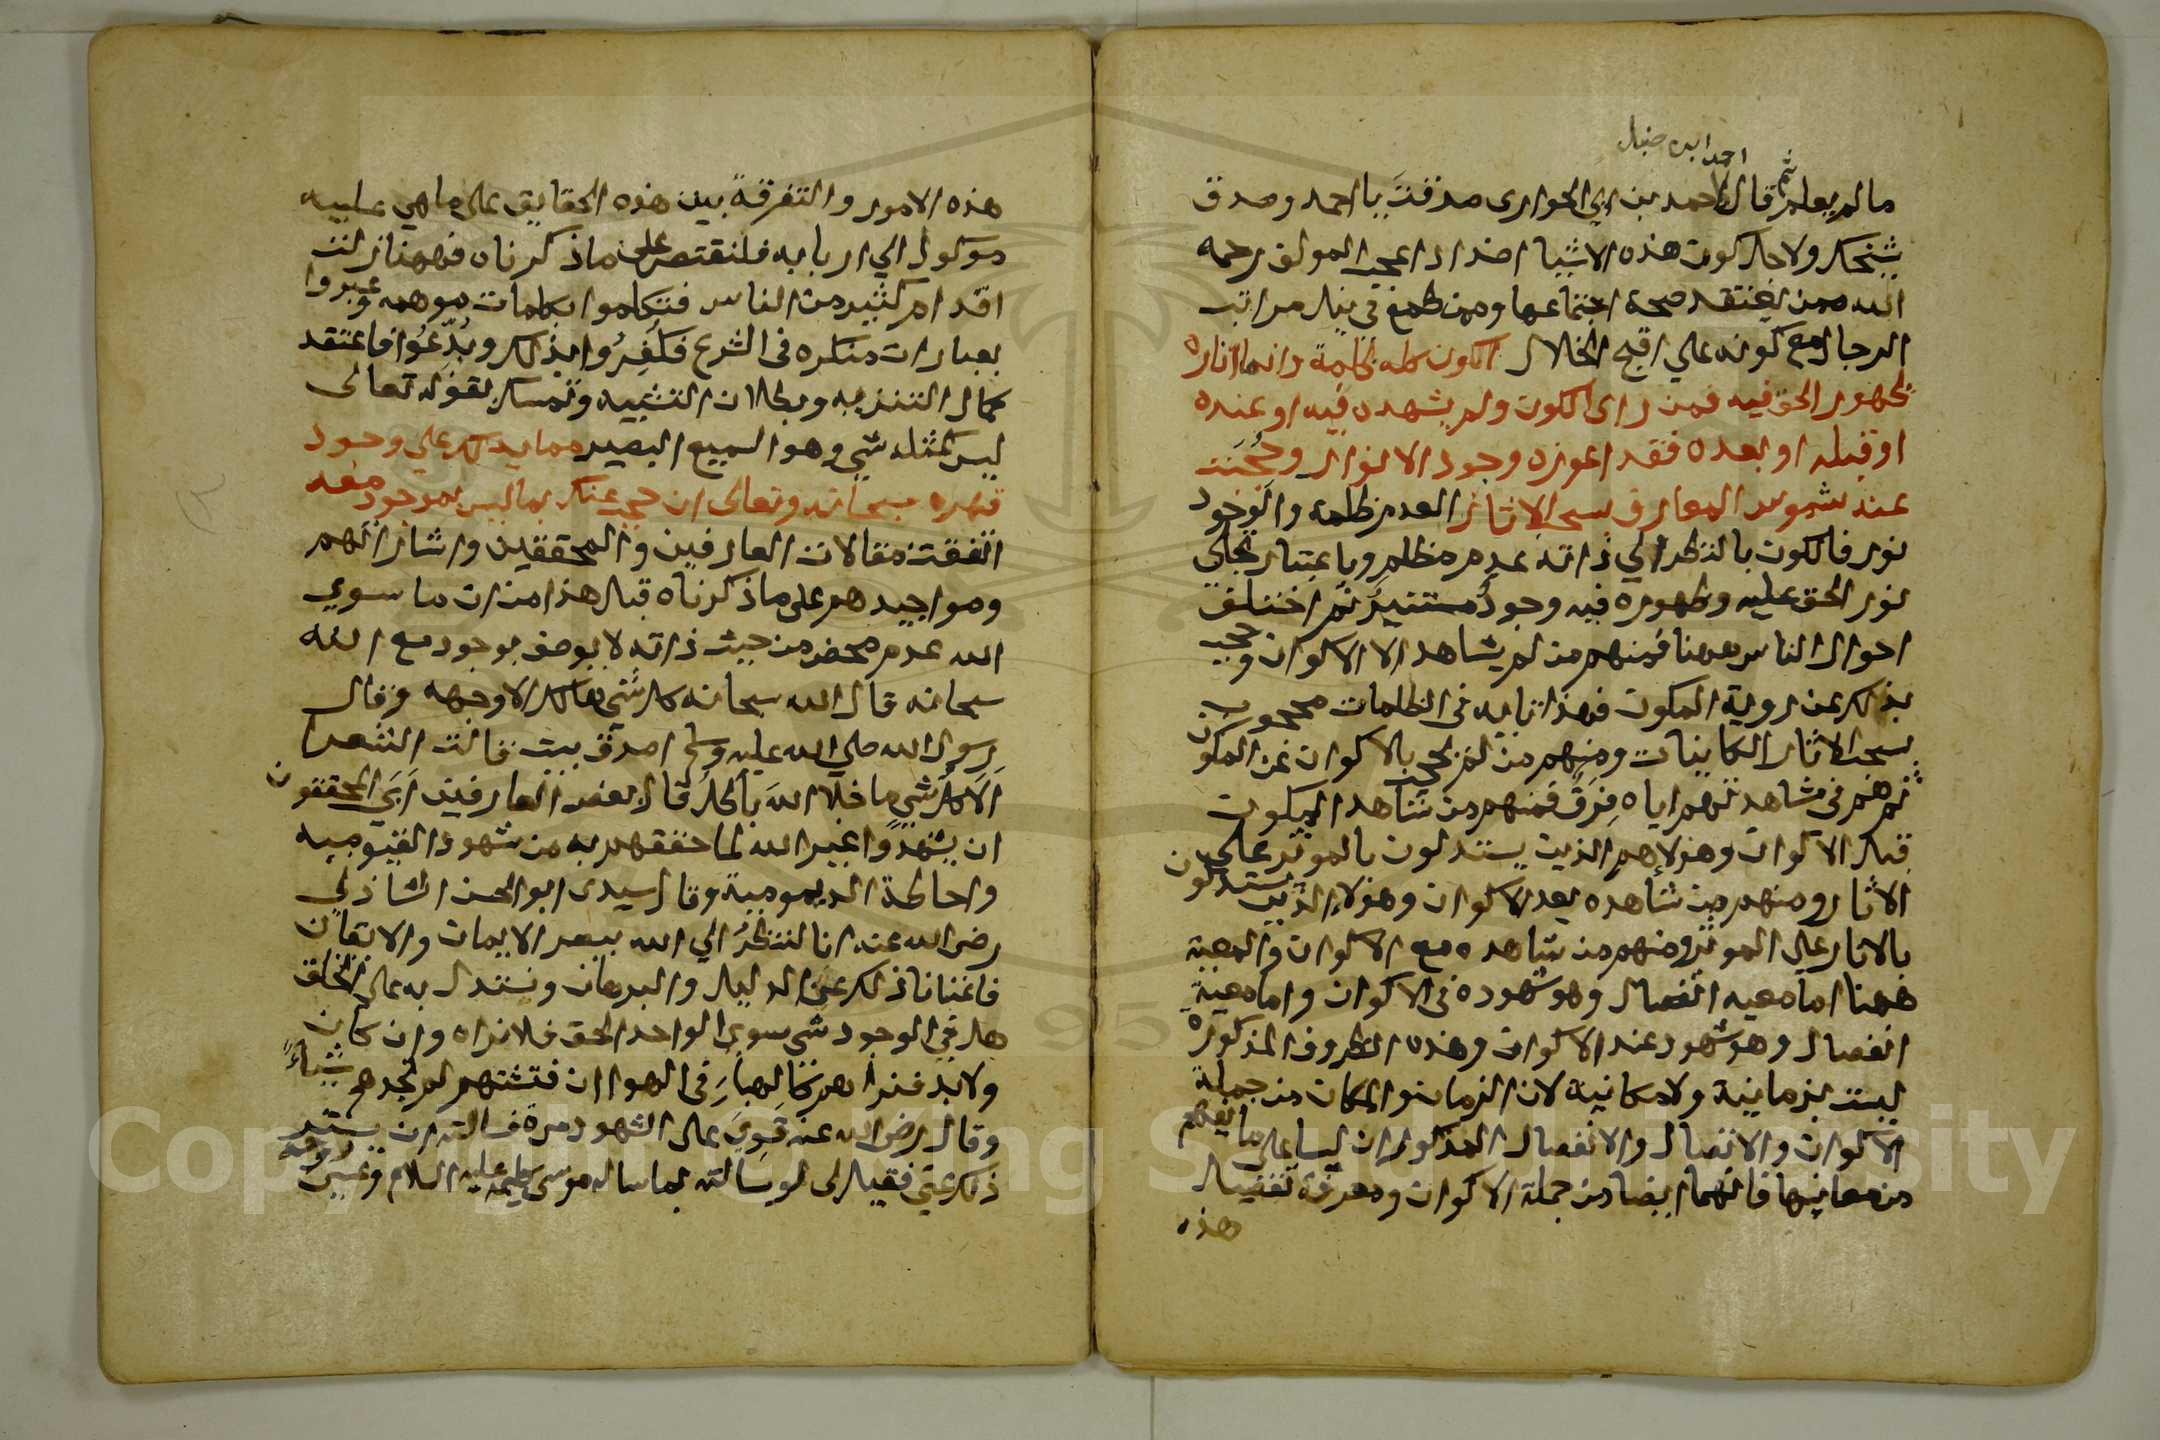 احمد ابن حنبل
مالم يعلم ثم قال لاحمد بن ابي الحواري صدقت يا احمد وصدق
شيخك ولاجل كون هذه الاشيا اضدادا عجب المولف رحمه
الله ممن يعتقد صحة اجتماعها وممن طمع في نيل مراتب
الرجال مع كونه علي اقبح الخلال الكون كله ظلمة وانما اناره
ظهور الحق فيه فمن راى الكون ولم يشهده فيه او عنده
او قبله او بعده فقد اعوزه وجود الانوار وحُجبَت
عنه شموس المعارف بسحب الاثار العدم ظلمه والوجود
نور فالكون بالنظر الي ذاته عدم مظلم وباعتبار تجلي
نور الحق عليه وظهوره فيه وجودٌ مستنيرٌ ثم اختلف
احوال الناس ههنا فمنهم من لم يشاهد الا الاكوان وحجب
بذلك عن روية المكون فهذا تايه في الظلمات محجوب
بسحب الاثار الكاينات ومنهم من لم يحجب بالاكوان عن المكون
ثم هم في مشاهدتهم اياه فِرَق فمنهم من شاهد المكون
قبل الاكوان وهولا هم الذين يستدلون بالموثر علي
الاثار ومنهم من شاهده بعد الاكوان وهولاء الذين يستدلون
بالاثار على الموثر ومنهم من شاهده مع الاكوان والمعية
ههنا اما معيه اتصال وهو شهوده في الاكوان واما معية
انفصال وهو شهود عند الاكوان وهذه الظروف المذكورة
ليست بزمانية ولا مكانية لان الزمان والمكان من جملة
الاكوان والاتصال والانفصال المذكوران ليسا على ما يفهم
من معانيها فانهما ايضا من جملة الاكوان ومعرفة تفصيل
هذه
هذه الامور والتفرقة بين هذه الحقايق على ما هي عليه
موكول الي اربابه فلنقتصر على ما ذكرناه فههنا زلت
اقدام كثير من الناس فتكلموا بكلمات موهمه وعبروا
بعبارات منكره في الشرع فكُفِرُوا بذلك وبُدِّعُوا فاعتقد
كمال التنزيه وبطلان التشبيه وتمسك بقوله تعالى
ليس كمثله شي وهو السميع البصير مما يدلك علي وجود
قهره سبحانه وتعالى ان حجبك عنه بما ليس بموجود معه
اتفقت مقالات العارفين والمحققين واشاراتهم
ومواجيدهم على ما ذكرناه قبل هذا من ان ما سوي
الله عدم محض من حيث ذاته لا يوصف بوجود مع الله
سبحانه قال الله سبحانه كل شي هالك الا وجهه وقال
رسول الله صلي الله عليه وسلم اصدق بيت قالت الشعرا
اَلاَ كلُ شيٍ ما خلا اللهَ باطلُ قال بعض العارفين اَبَى المحققون
ان يشهدوا غير الله لما حققهم به من شهود القيوميه
واحاطة الديمومية وقال سيدى ابو الحسن الشاذلي
رضي الله عنه انا لننظرُ الي الله ببصر الايمان والايقان
فاغنانا ذلك عن الدليل والبرهان ونستدل به على الخلق
هل في الوجود شي سوى الواحد الحق فلا نراه وان كان
ولابد فنراهم كالهباءِ في الهوا ان فتشتهم لم تجدهم شيئاً
وقال رضي الله عنه قوِيَ على الشهود مرة فسالته ان يستر
ذلك عني فقيل لى لو سالته بما ساله موسى كليمه عليه السلام وعيسى روحه